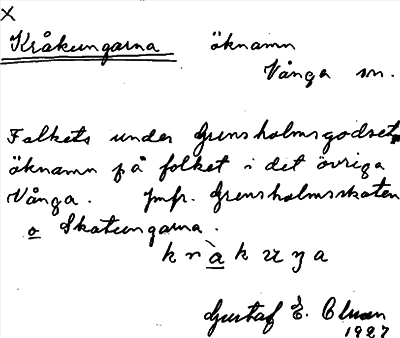 X
Kråkungarna öknamn
Vånga sn.
Folkets under Grensholmsgodset
öknamn på folket i det övriga
Vånga. Jmfr. Grensholmsskaten
o Skatungarna.
Gustaf E.
1927